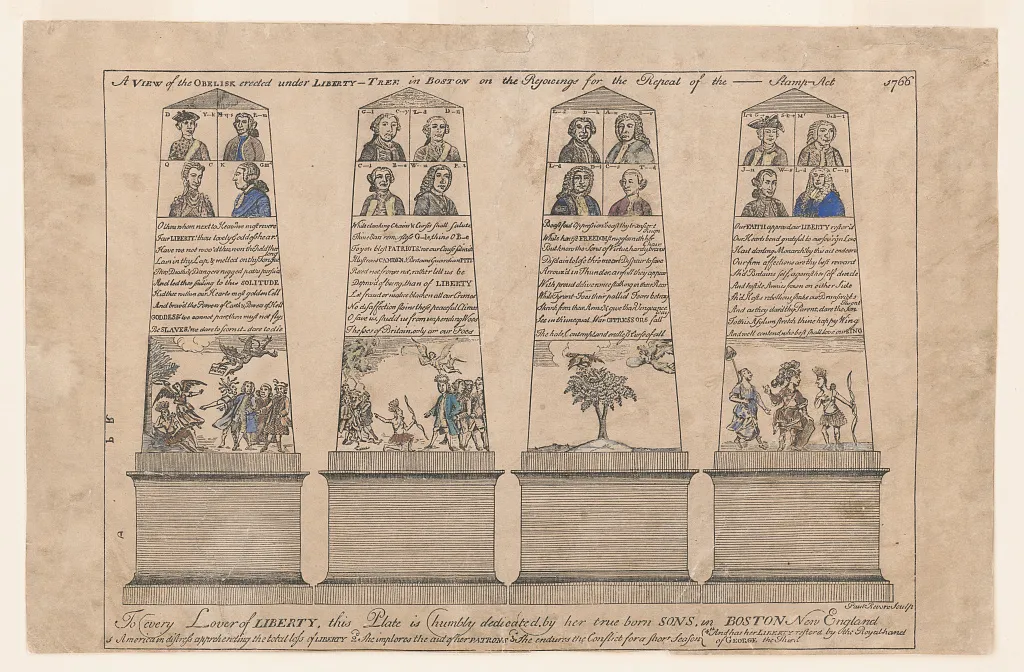 A VIEW of the OBELISK erected under LIBERTY-TREE in BOSTON on the Rejoicings for the Repeal of the —— Stamp-Act 1766
D Y-k M-q-s R-m
Q C K G III
G-l C-y L-d D-
C-l B-e W-s P-t
L-d
J-n W-s L-d C-n
O thou whom next to Heav'n we most revere
Fair LIBERTY thou lovely Goddess hear
Have we not woo'd thee won thee held thee long
Lain in thy Lap & melted on thy Tongue
Thro Deaths & Dangers rugged paths pursu'd
And led thee smiling to this SOLITUDE
Hid thee within our Hearts most golden Cell
And brav'd the Powers of Earth & Powers of Hell
GODDESS we cannot part thou must not fly
Be SLAVES we dare to scorn it dare to die
While clanking Chains & Curses shall salute
Thine Ears remorseless G—le, thine O B—e
To you blest PATRIOTS we our Cause submit
Illustrious CAMDEN, Britains Guardian PITT
Recede not frown not, rather let us be
Depriv'd of being than of LIBERTY
Let fraud or malice blacken all our Crimes
No disaffection stains these peaceful Climes
O save us, shield us from impending Woes
The foes of Britain only are our Foes
Boast foul Oppression boast thy transient Reign
While honest FREEDOM struggles with her Chain
But know the Sons of Virtue, hardy, brave
Disdain to lose thro mean Despair to save
Arrouz'd in Thunder, awfull they appear
With proud deliverance stalking in their Rear
While Tyrant-Foes their pallid Fears betray
Shrink from their Arms, & give their Vengeance way
See in th'unequal War OPPRESSORS fall
The hate, Contempt, and endless Curse of all
Our FAITH approv'd our LIBERTY restor'd
Our Hearts bend grateful to our sov'reign Lord
Hail darling Monarch! by this act endear'd
Our firm affections are thy best reward
Sh'd Britains self, against herself divide
And hostile Armies frown on either Side
Sh'd Hosts rebellious, shake our Brunswick's Throne
And as they dar'd thy Parent, dare the Son
To this Asylum stretch thine happy Wing
And we'll contend who best shall love our KING
Paul Revere Sculp
To every Lover of LIBERTY, this Plate is humbly dedicated, by her true born SONS, in BOSTON New England
1 America in distress apprehending the total loss of LIBERTY 2d She implores the aid of her PATRONS 3d She endures the Conflict for a short Season 4 And has her LIBERTY restord by the Royal hand
of GEORGE the Third